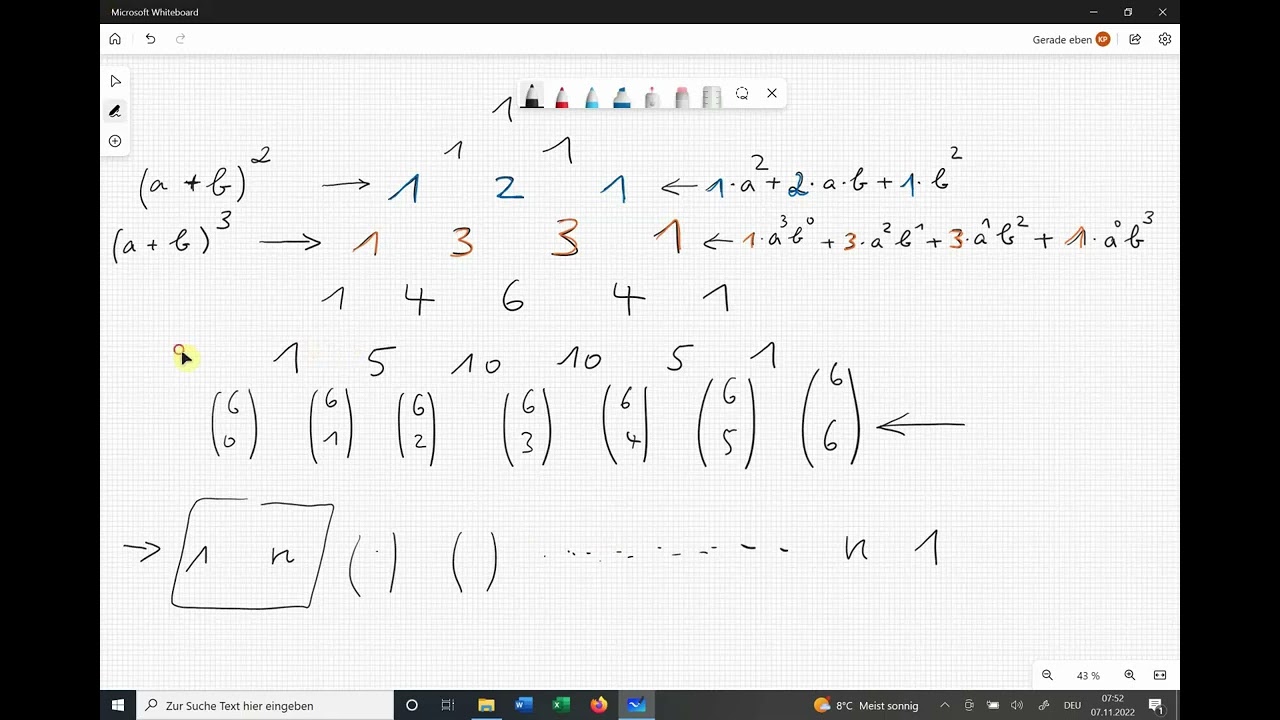 Microsoft Whiteboard
Gerade eben KP
1
1 1
(a + b)² → 1 2 1 ← 1·a² + 2·a·b + 1·b²
(a + b)³ → 1 3 3 1 ← 1·a³b⁰ + 3·a²b¹ + 3·a¹b² + 1·a⁰b³
1 4 6 4 1
1 5 10 10 5 1
(6 0) (6 1) (6 2) (6 3) (6 4) (6 5) (6 6) ←
→ 1 n (·) ( ) ........... n 1
43 %
Zur Suche Text hier eingeben
8°C Meist sonnig
DEU
07:52
07.11.2022
1